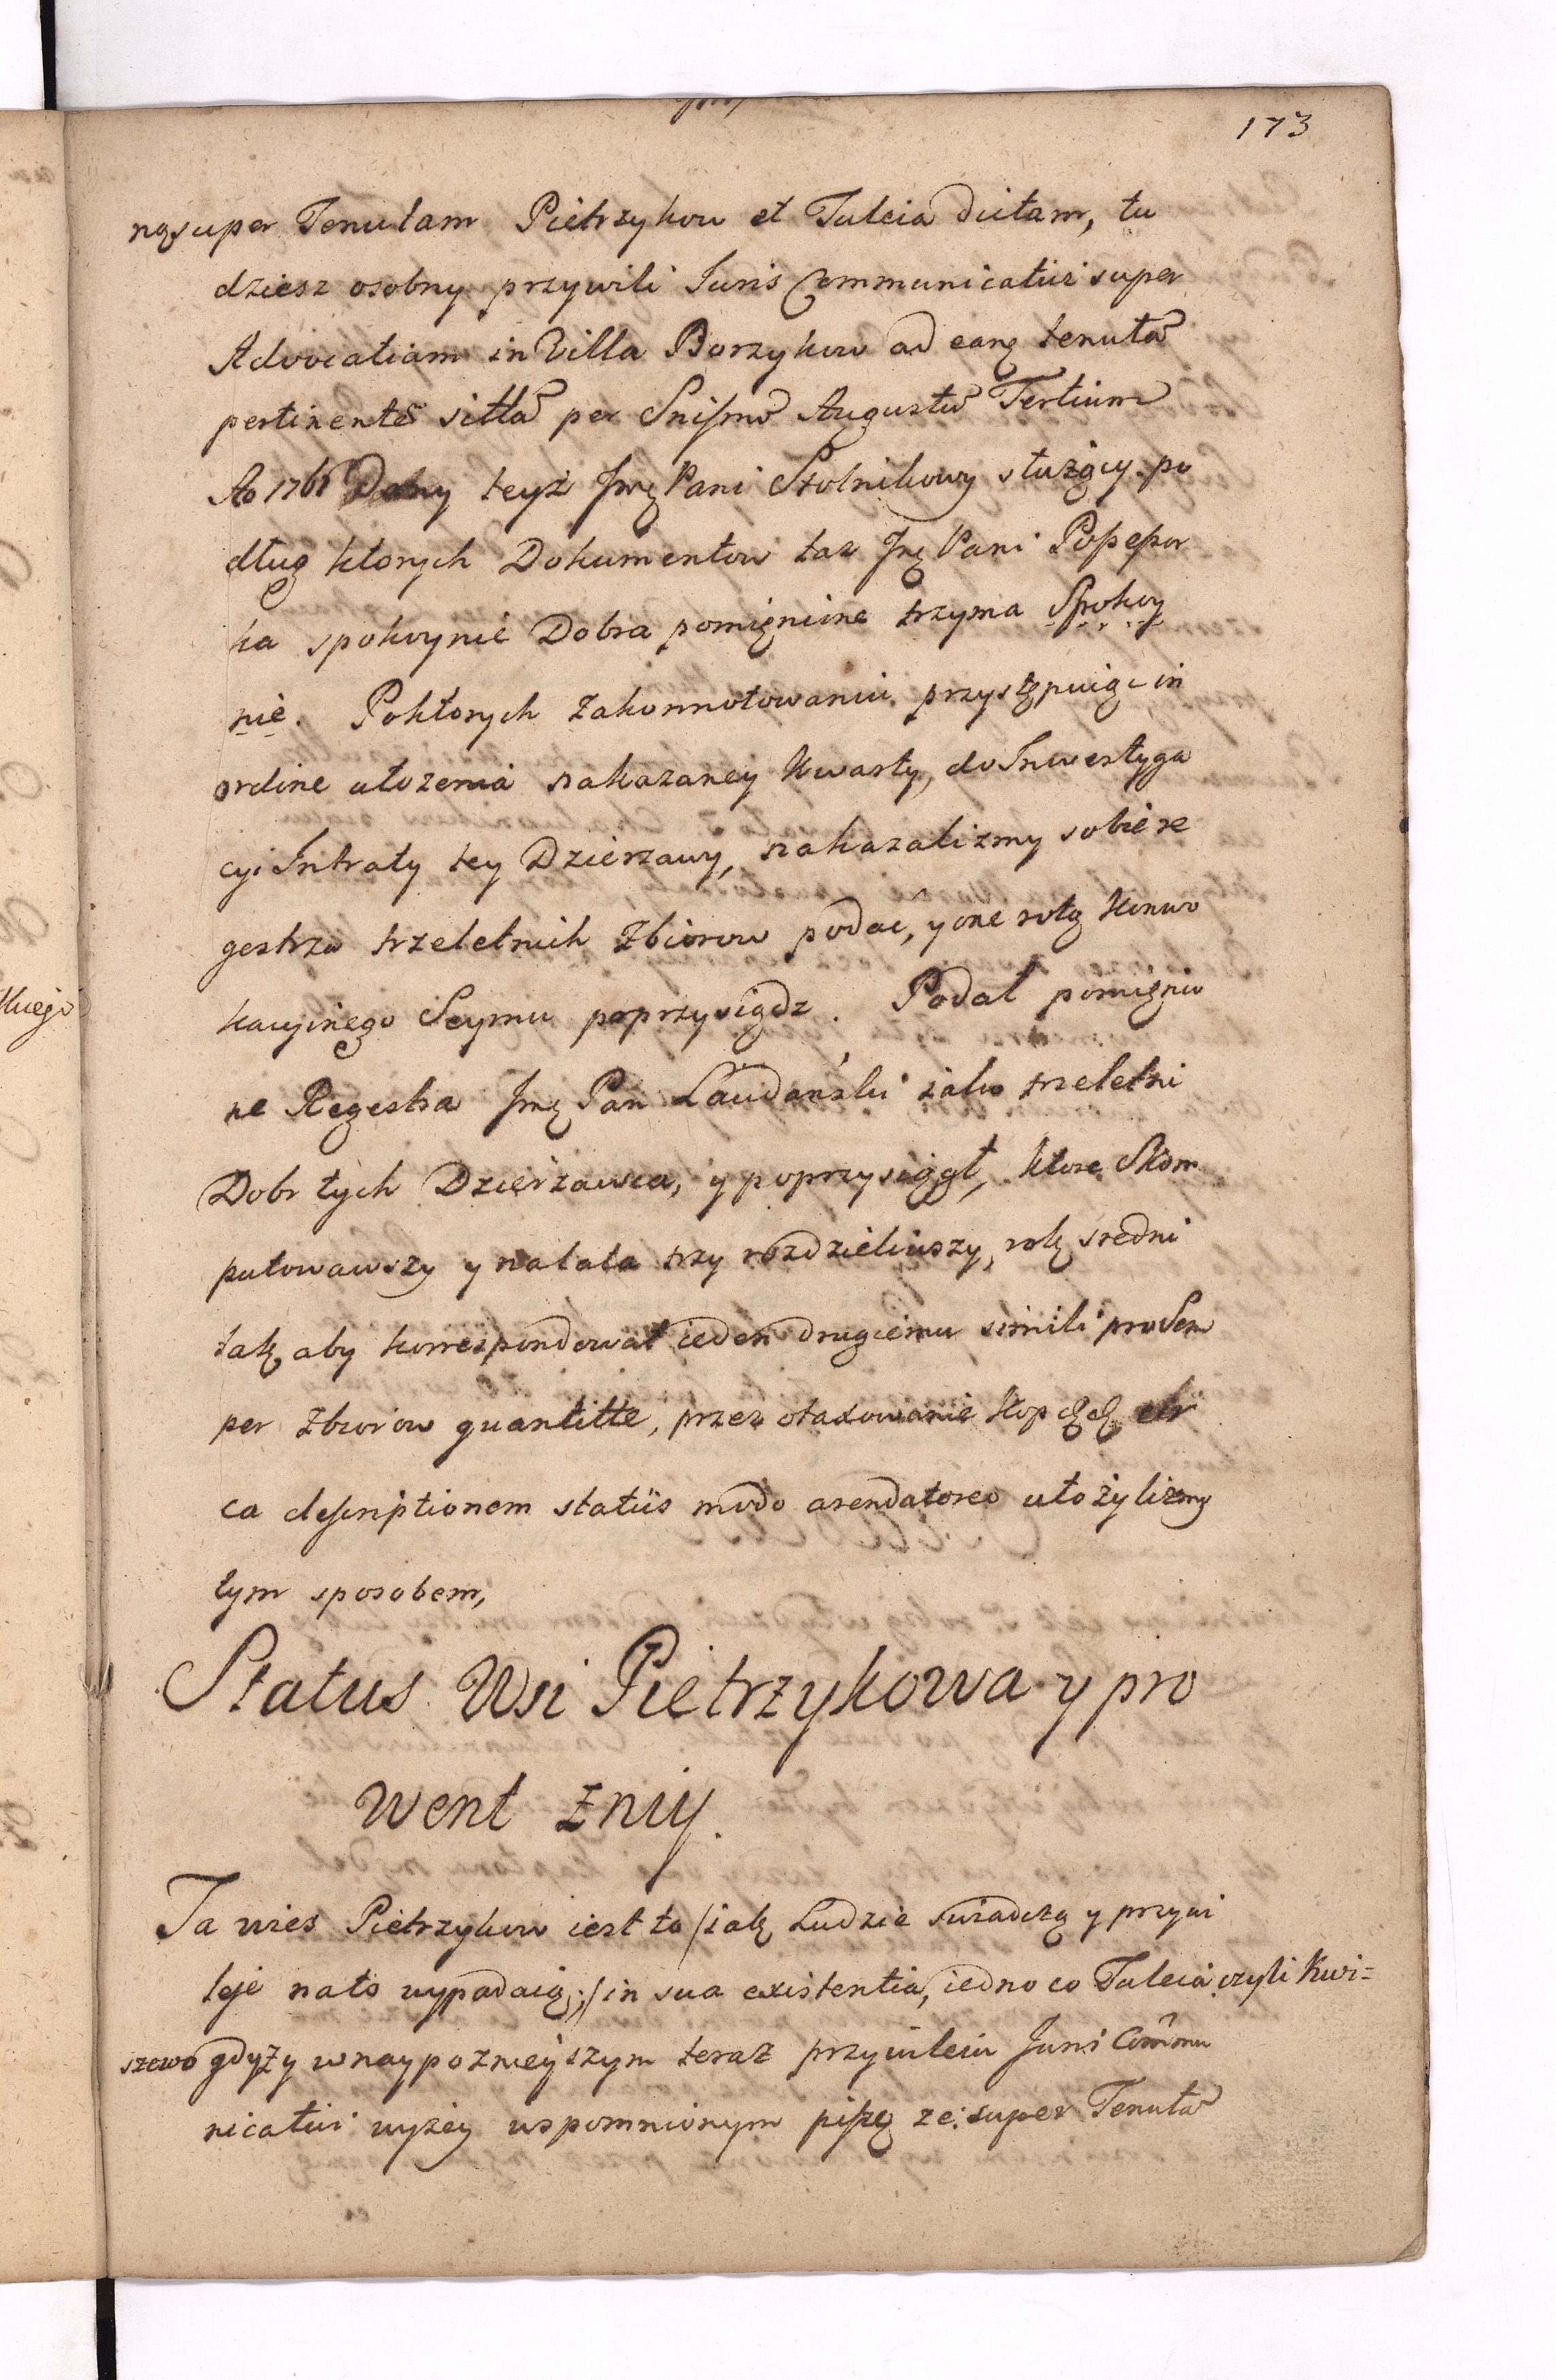 173
nę super Tenutam Pietrzykow et Tulcia dictam, tu
dziesz osobny przywili Juris Communicativi super
Advocatiam in Villa Borzykow ad eanę tenutã
pertinentẽ sittã per Sñissmũ Augustũ Tertium
Ao 1761 Dany teyż Jmę Pani Stolnikowy służący. po
dług ktorych Dokumentow taz Jmę Pani Possessor
ka spokoynie Dobra pomięnione trzyma Spokoy
nie. Poktorych zakonnotowaniu przystępuiąc in
ordine ułozenia nakazaney Kwarty, do Inwestyga
cyi Intraty tey Dzierzawy, nakazalizmy sobie re
gestra trzeletnich Zbiorow podac, y one rotą Konwo
kacyinego Seymu poprzysiądz. Podał pomięnio
ne Regestra Jmę Pan Laudański iako trzeletni
Dobr tych Dzierżawca, y poprzysiągł, ktore Skom
putowawszy y nalata trzy rozdzieliwszy, rok sredni
tak aby korrespondował ieden drugiemu simili pro Sem
per Zbiorow quantitte, przez otaxowanie Kop cir
ca descriptionem statûs modo arendatoreo ułożylizmy
tym sposobem,
Status Wsi Pietrzykowa y pro
went zniy.
Ta wies Pietrzykow iest to /:iak Ludzie swiadczą y przywi
leje nato wypadaią:/ in sua existentia, iedno co Tulcia czyli Kwi=
szewo gdyż y wnaypoznieyszym teraz przywileiu Juris Com̃mu
nicativi wyżey wspomnionym piszą ze: super Tenutã